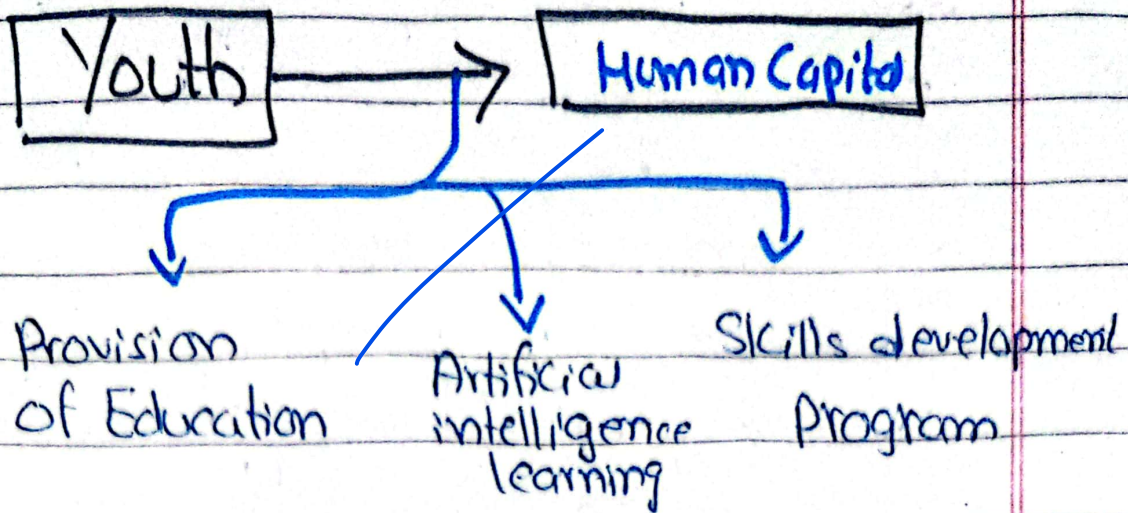 Youth
Human Capital
Provision
of Education
Artificial
intelligence
learning
Skills development
Program